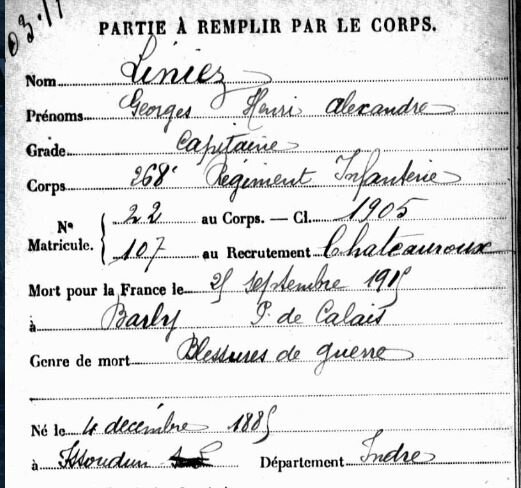 PARTIE À REMPLIR PAR LE CORPS.
Nom Liniez
Prénoms Georges Henri Alexandre
Grade Capitaine
Corps 268e Régiment Infanterie
N° Matricule. 22 au Corps. — Cl. 1905
107 au Recrutement Chateauroux
Mort pour la France le 25 septembre 1915
à Barly P. de Calais
Genre de mort Blessures de guerre
Né le 4 décembre 1885
à Issoudun Département Indre